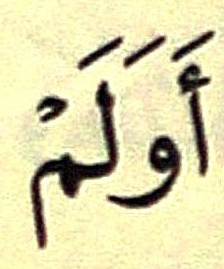 أَوَلَمْ